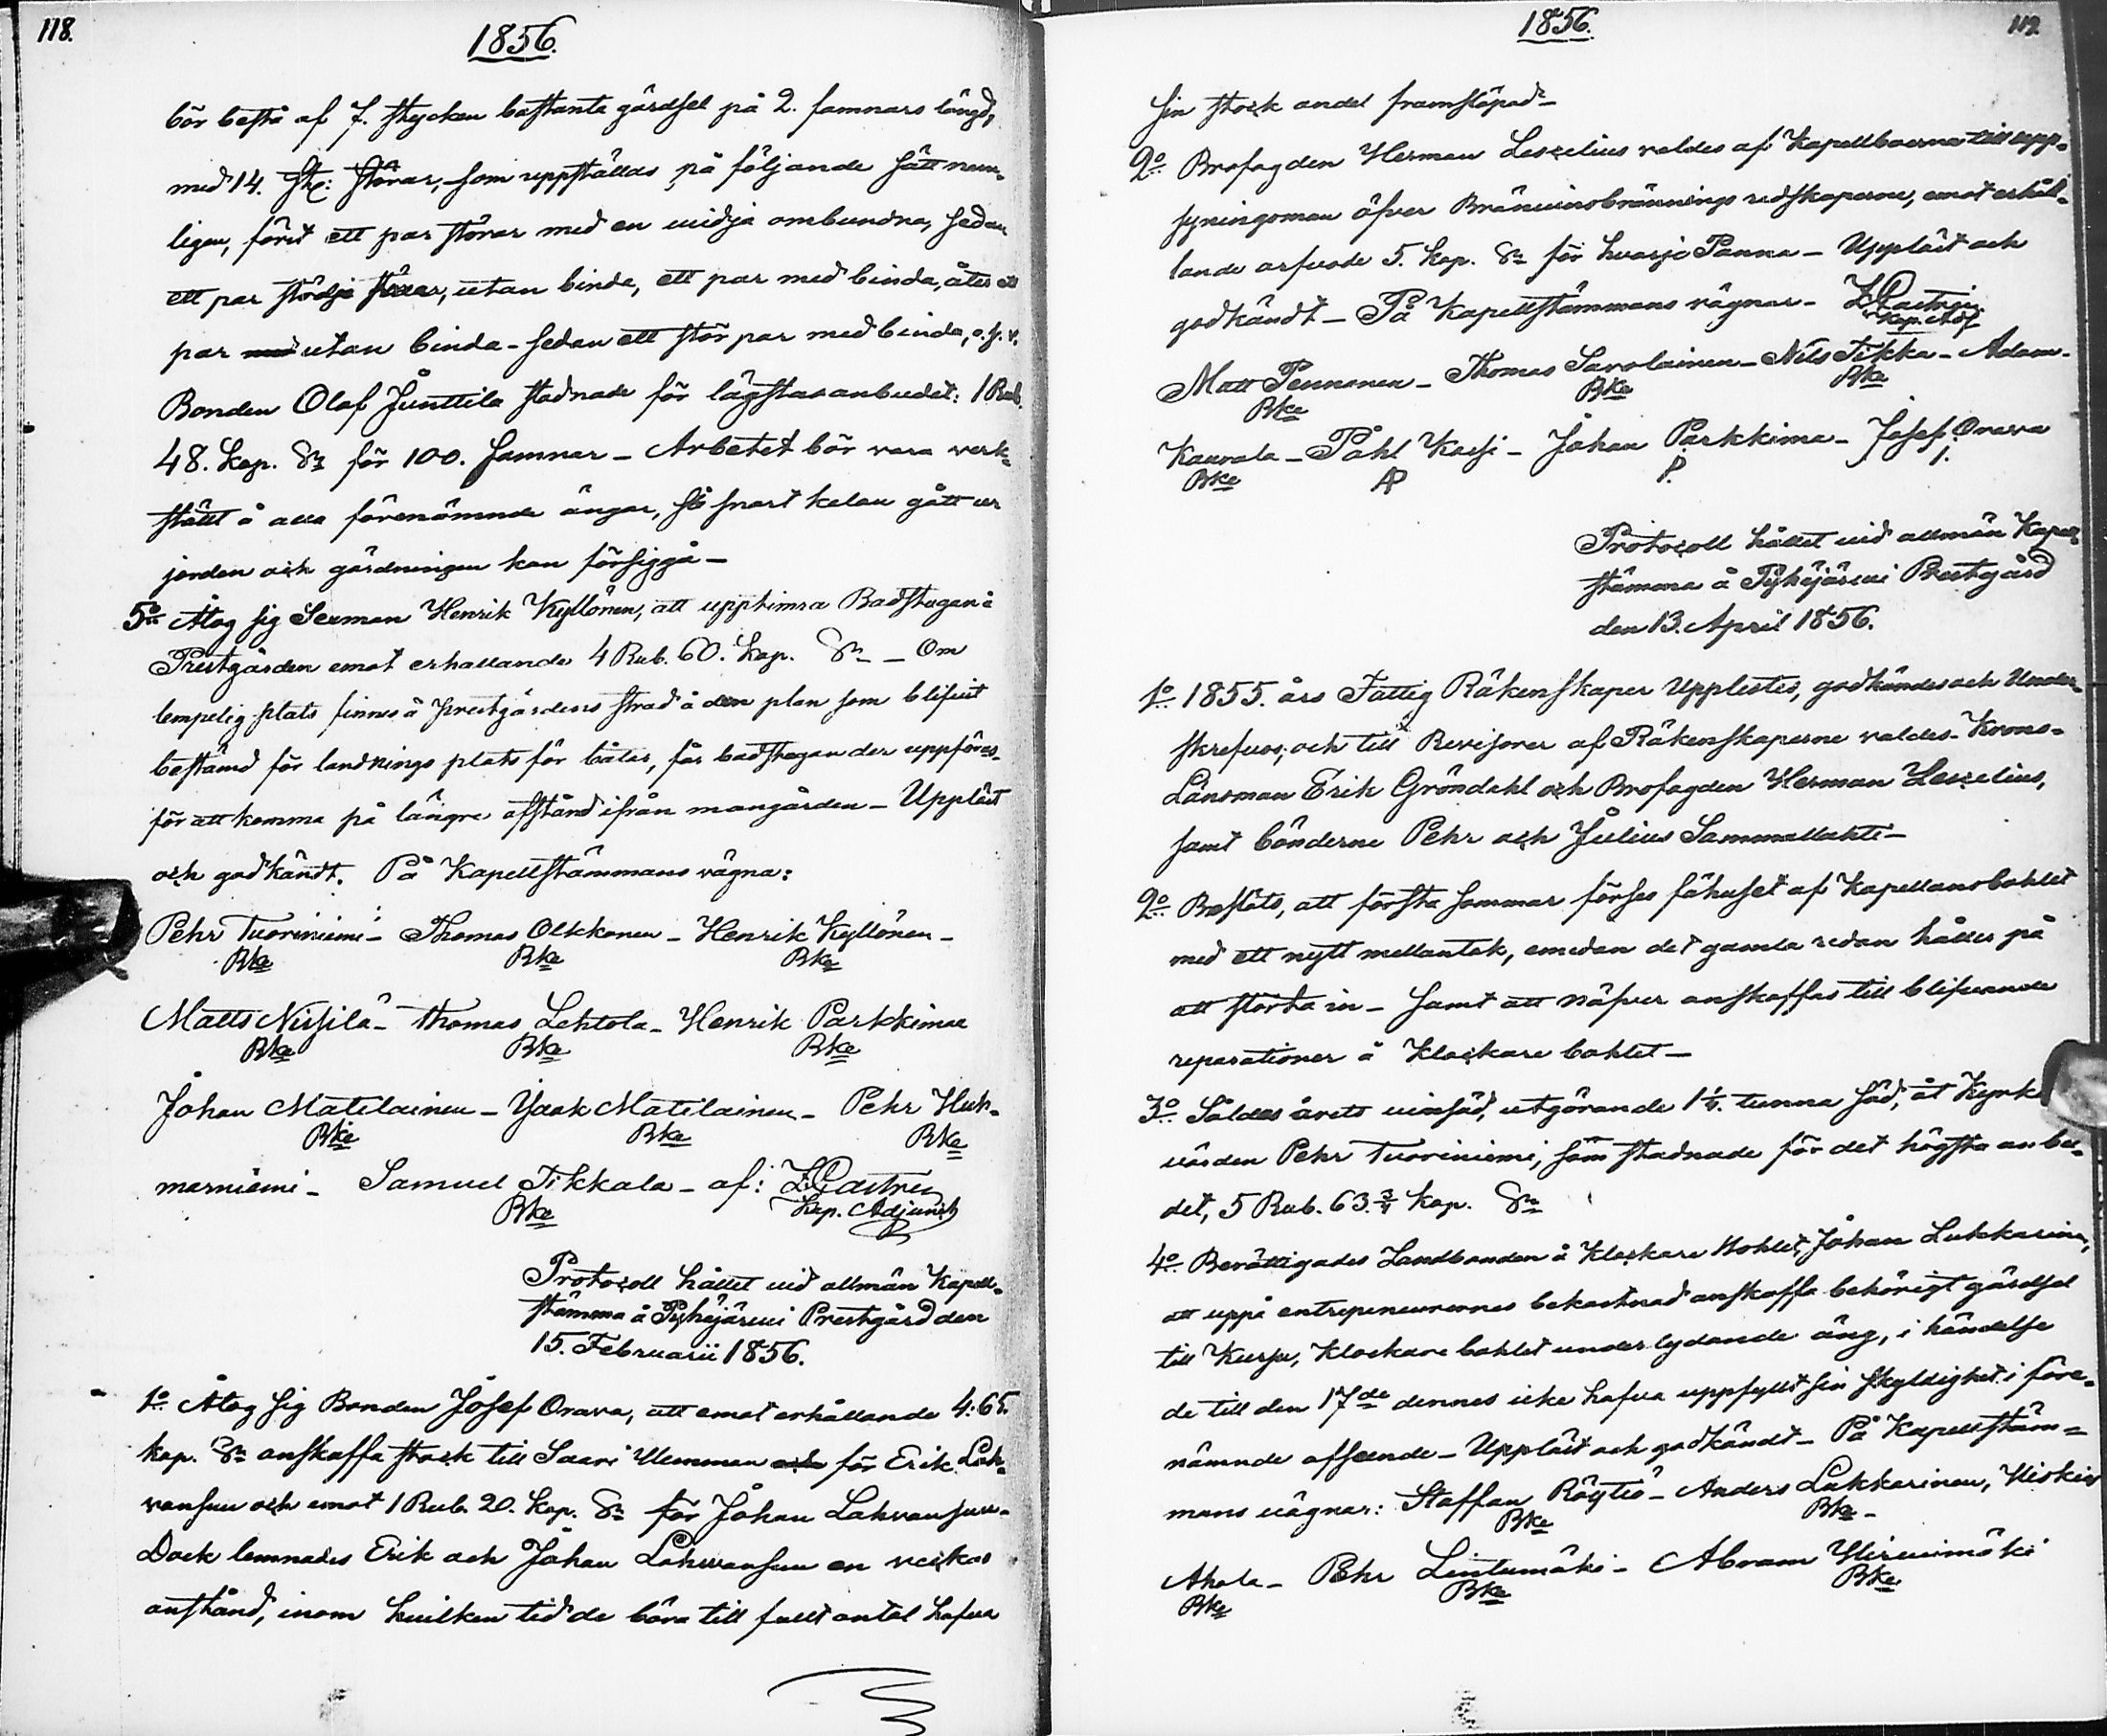 118.
1856.
bör bestå af 7. stycken bastanta gärdsel på 2. famnars längd,
med 14. st: störar, som uppställas på följande sätt nem-
ligen, först ett par störar med en vidja ombundna, sedan
ett par stödje störar, utan binda, ett par med binda, åter ett
par med utan binda - sedan ett stör par med binda, o.s.v.
Bonden Olof Junttila stadnade för lägsta anbudet: 1 Rub.
48. kop. Sr för 100. famnar - Arbetet bör vara verk-
stält å alla förenämnde ängar, så snart kelan gått ur
jorden och gärdningen kan försiggå -
5o Åtog sig Sexman Henrik Kyllönen, att upptimra Badstugan å
Prestgården emot erhallande 4 Rub. 60. kop. Sr - Om
lempelig plats finnes å prestgårdens strad å den plan som blifvit
bestämd för landnings plats för båtar, får badstugan der uppföras
för att komma på längre afstånd ifrån mangården - Uppläst
och godkändt. På Kapellstämmans vägna:
Pehr Tuoriniemi - Thomas Olkkonen - Henrik Kyllönen -
Bke Bke Bke
Matts Nissilä - Thomas Lehtola - Henrik Parkkimaa
Bke Bke Bke
Johan Matilainen - Isak Matilainen - Pehr Huh-
Bke Bke Bke
marniemi - Samuel Tikkala - af: Z Castrén
Bke Kap. Adjunct
Protocoll hållet vid allmän Kapell-
stämma å Pyhäjärvi Prestgård den
15. Februarii 1856.
1o Åtog sig Bonden Josef Orava, att emot erhållande 4: 65.
kop. Sr anskaffa stock till Saari Ulemman och för Erik Lah-
vansuu och emot 1 Rub. 20. kop. Sr för Johan Lahvansuu -
Dock lemnades Erik och Johan Lahvansuu en veckas
anstånd, inom hvilken tid de böra till fullt antal hafva
1856.
119.
sin stock andel framsläpad -
2o Brofogden Herman Lescelius valdes af Kapellboerna till upp-
syningsman öfver Bränvinsbrännings redskaperne, emot erhål-
lande arfvode 5. kop. Sr för hvarje Panna - Uppläst och
godkändt - På Kapellstämmans vägnar - Z Castrén
Kap. Adj
Matt Pennanen - Thomas Savolainen - Nils Tikka - Adam
Bke Bke Bke
Kauvala - Påhl Kassi - Johan Parkkima - Josef Orava
Bke AP P. I.
Protocoll hållet vid allmän Kapell-
stämma å Pyhäjärvi Prestgård
den 13. April 1856.
1o 1855. års Fattig Räkenskaper Upplestes, godkändes och Under-
skrefvos, och till Revisorer af Räkenskaperne valdes Krono-
Länsman Erik Gröndahl och Brofogden Herman Lescelius,
samt bönderne Pehr och Julius Sammallahti -
2o Beslöts, att första sommar förses fähuset af Kapellansbohlet
med ett nytt mellantak, emedan det gamla redan håller på
att störta in - samt att näfver anskaffas till blifvande
reparationer å Klockare bohlet -
3o Såldes årets vinsäd, utgörande 1 1/4. tunna säd, åt Kyrko
värden Pehr Tuoriniemi, som stadnade för det högsta anbu-
det, 5 Rub. 63. 3/4 kop. Sr
4o Berättigades Landbonden å Klockare Bohlet, Johan Lukkarinen,
att uppå entrepeneurernes bekostnad anskaffa behörigt gärdsel
till Kurju, Klockare bohlet underlydande äng, i händelse
de till den 17de dennes icke hafva uppfyllt sin skyldighet i före-
nämnde afseende - Uppläst och godkändt - På Kapellstäm-
mans vägnar: Staffan Röytiö - Anders Lukkarinen, Hiskias
Bke Bke -
Ahola - Pehr Lintumäki - Abram Hirvimäki
Bke Bke Bke